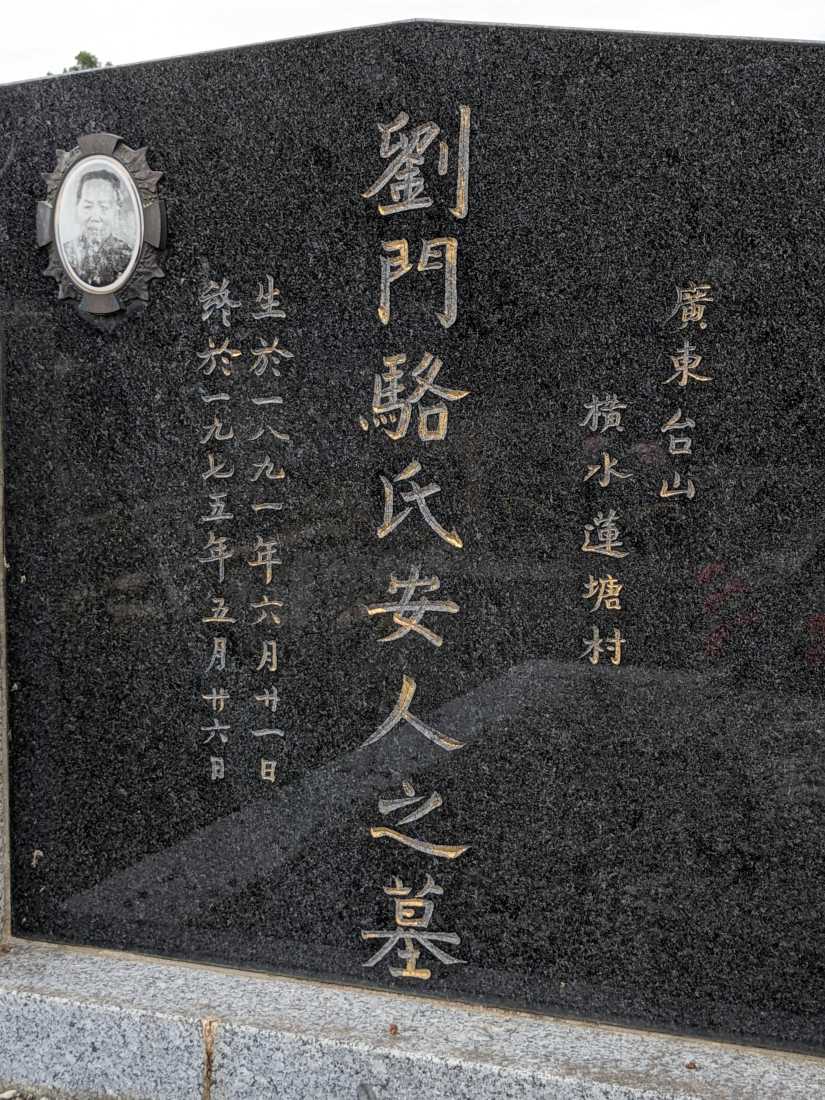 廣東台山
橫水蓮塘村
劉門駱氏安人之墓
生於一八九一年六月廿一日
終於一九七五年五月廿六日